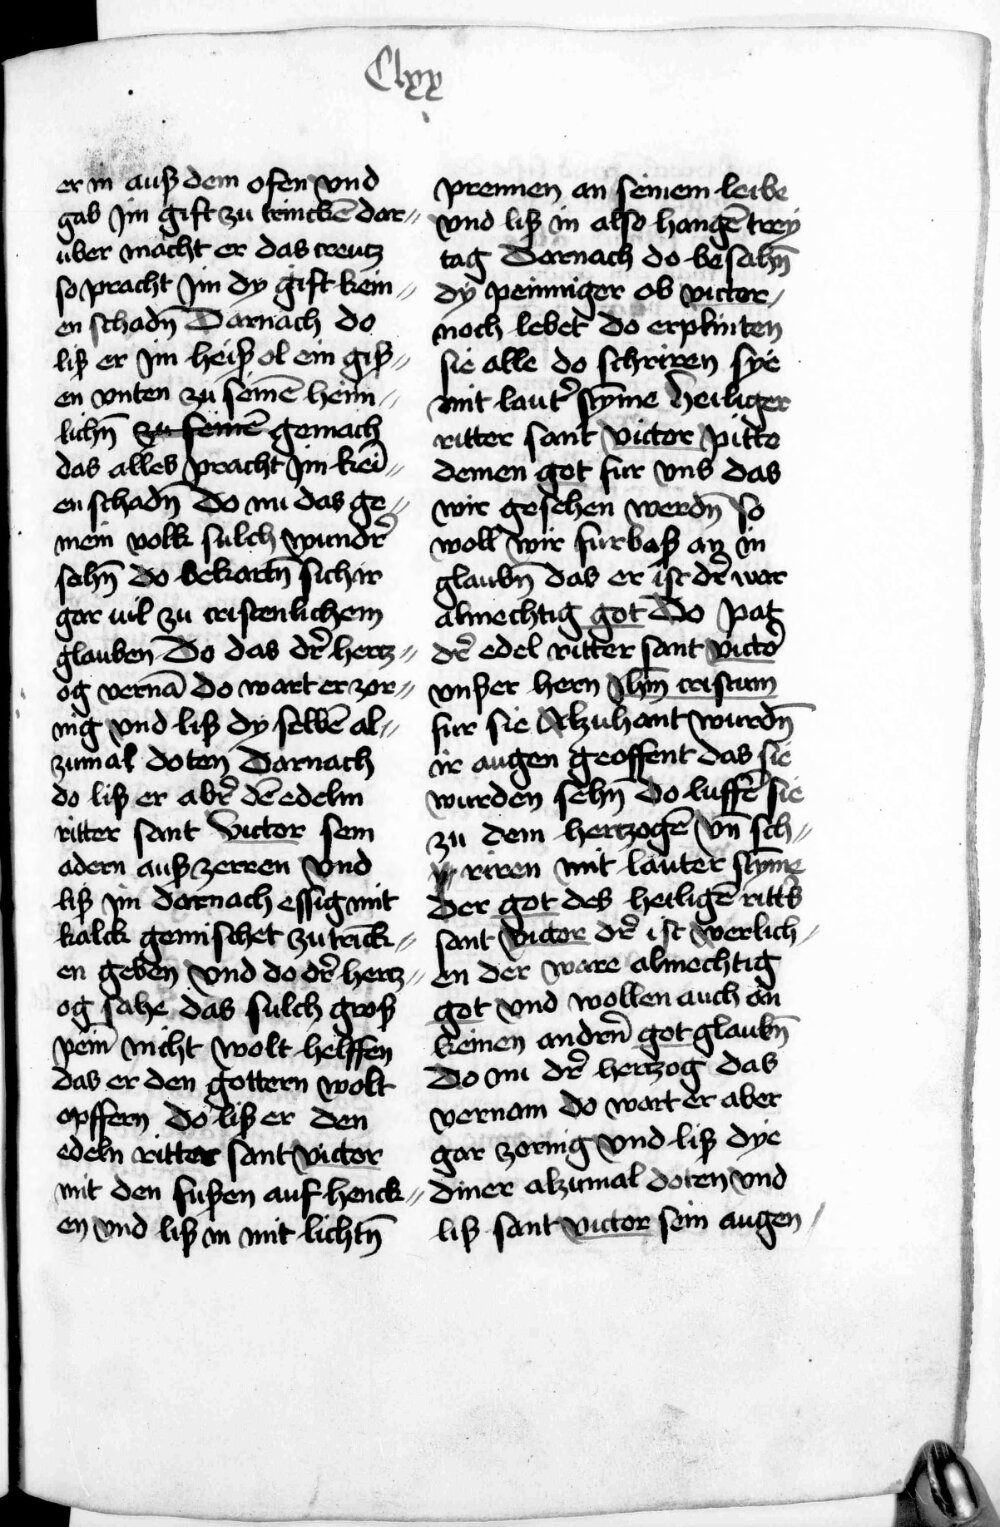 Clxx
er in auß dem ofen vnd
gab jm gift zu trinckē dar〃
uber macht er das creutz
so pracht jm dy gift kein〃
en schadn̄ Darnach do
liß er jm heiß ol ein giß〃
en vnten zu seinē heim〃
lichn̄ zu seinē gemach
das alles pracht jm kei᷑〃
en schadn̄ Do nu das ge〃
mein volk sulch wundr̄
sahn̄ do bekartn̄ sich ir
gar uil zu cristenlichem
glauben Do das dr̄ hertz〃
og vernā do wart er zor〃
nig vnd liß dy selbē al〃
zumal doten Darnach
do liß er abr̄ dē edelm
ritter sant Victor sein
adern auß zerren vnd
liß jm darnach essig mit
kalck gemischet zu trīck〃
en geben vnd do dr̄ hertz〃
og sahe das sulch groß
pein nicht wolt helffen
das er den gottern wolt
opffern do liß er den
edeln ritter sant victor
mit den fußen auf henck〃
en vnd liß in mit lichtn̄
prennen an seinem leibe
vnd liß in also hangē trey
tag Darnach do besahn̄
dy peinniger ob victor/
noch lebet do erplinten
sie alle do schriren sye
mit lautr̄ stȳme heiliger
ritter sant victor pitte
deinen got fur vns das
wir gesehen werdn̄ so
woll wir furbaß an in
glaubn̄ das er ist dr̄ war
almechtig got Do pat
dr̄ edel ritter sant victor̄
vnßer hern jhm̄ cristum
fur sie Alzuhant wurdn̄
ir augen geoffent das sie
wurden sehn̄ do luffē sie
zu dem hertzogē vn̄ sch〃
riren mit lauter stȳme
Der got des heiligē ritt᷑s
sant victor dr̄ ist werlich/
en der ware almechtig
got vnd wollen auch an
keinen andrn̄ got glaubn̄
Do nu dr̄ hertzog das
vernam do wart er aber
gar zornig vnd liß dye
diner alzumal doten vnd
liß sant victor sein augen/